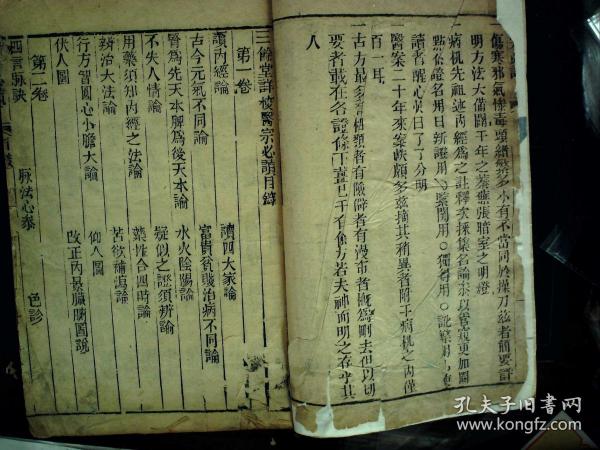 傷寒邪氣慘毒頭緒繁多小有不當同於操刀茲者簡要詳
明方法大備闢千年之蓁蕪張暗室之明燈
病机先祖述內經為之註釋次採集名論
讀者醒心奪目了了分明
醫案二十年來案帙頗多茲摘其稍異者附于病机之內僅
百一耳
古方最多有相類者有險僻者有漫而者槪為刪去但以切
要者載在各證條下蓋已千有餘方若夫神而明之存乎其
人
三餘堂詳校醫宗必讀目錄
第一卷
讀內經論
讀四大家論
古今元氣不同論
富貴貧賤治病不同論
腎為先天本脾為後天本論
水火陰陽論
不失人情論
疑似之證須辨論
用藥須知內經之法論
藥性合四時論
辨治大法論
苦欲補瀉論
行方智圓心小膽大論
仰人圖
伏人圖
改正內景臟腑圖說
第二卷
四言脉訣
脉法心參
色診
孔夫子旧书网
www.kongfz.com